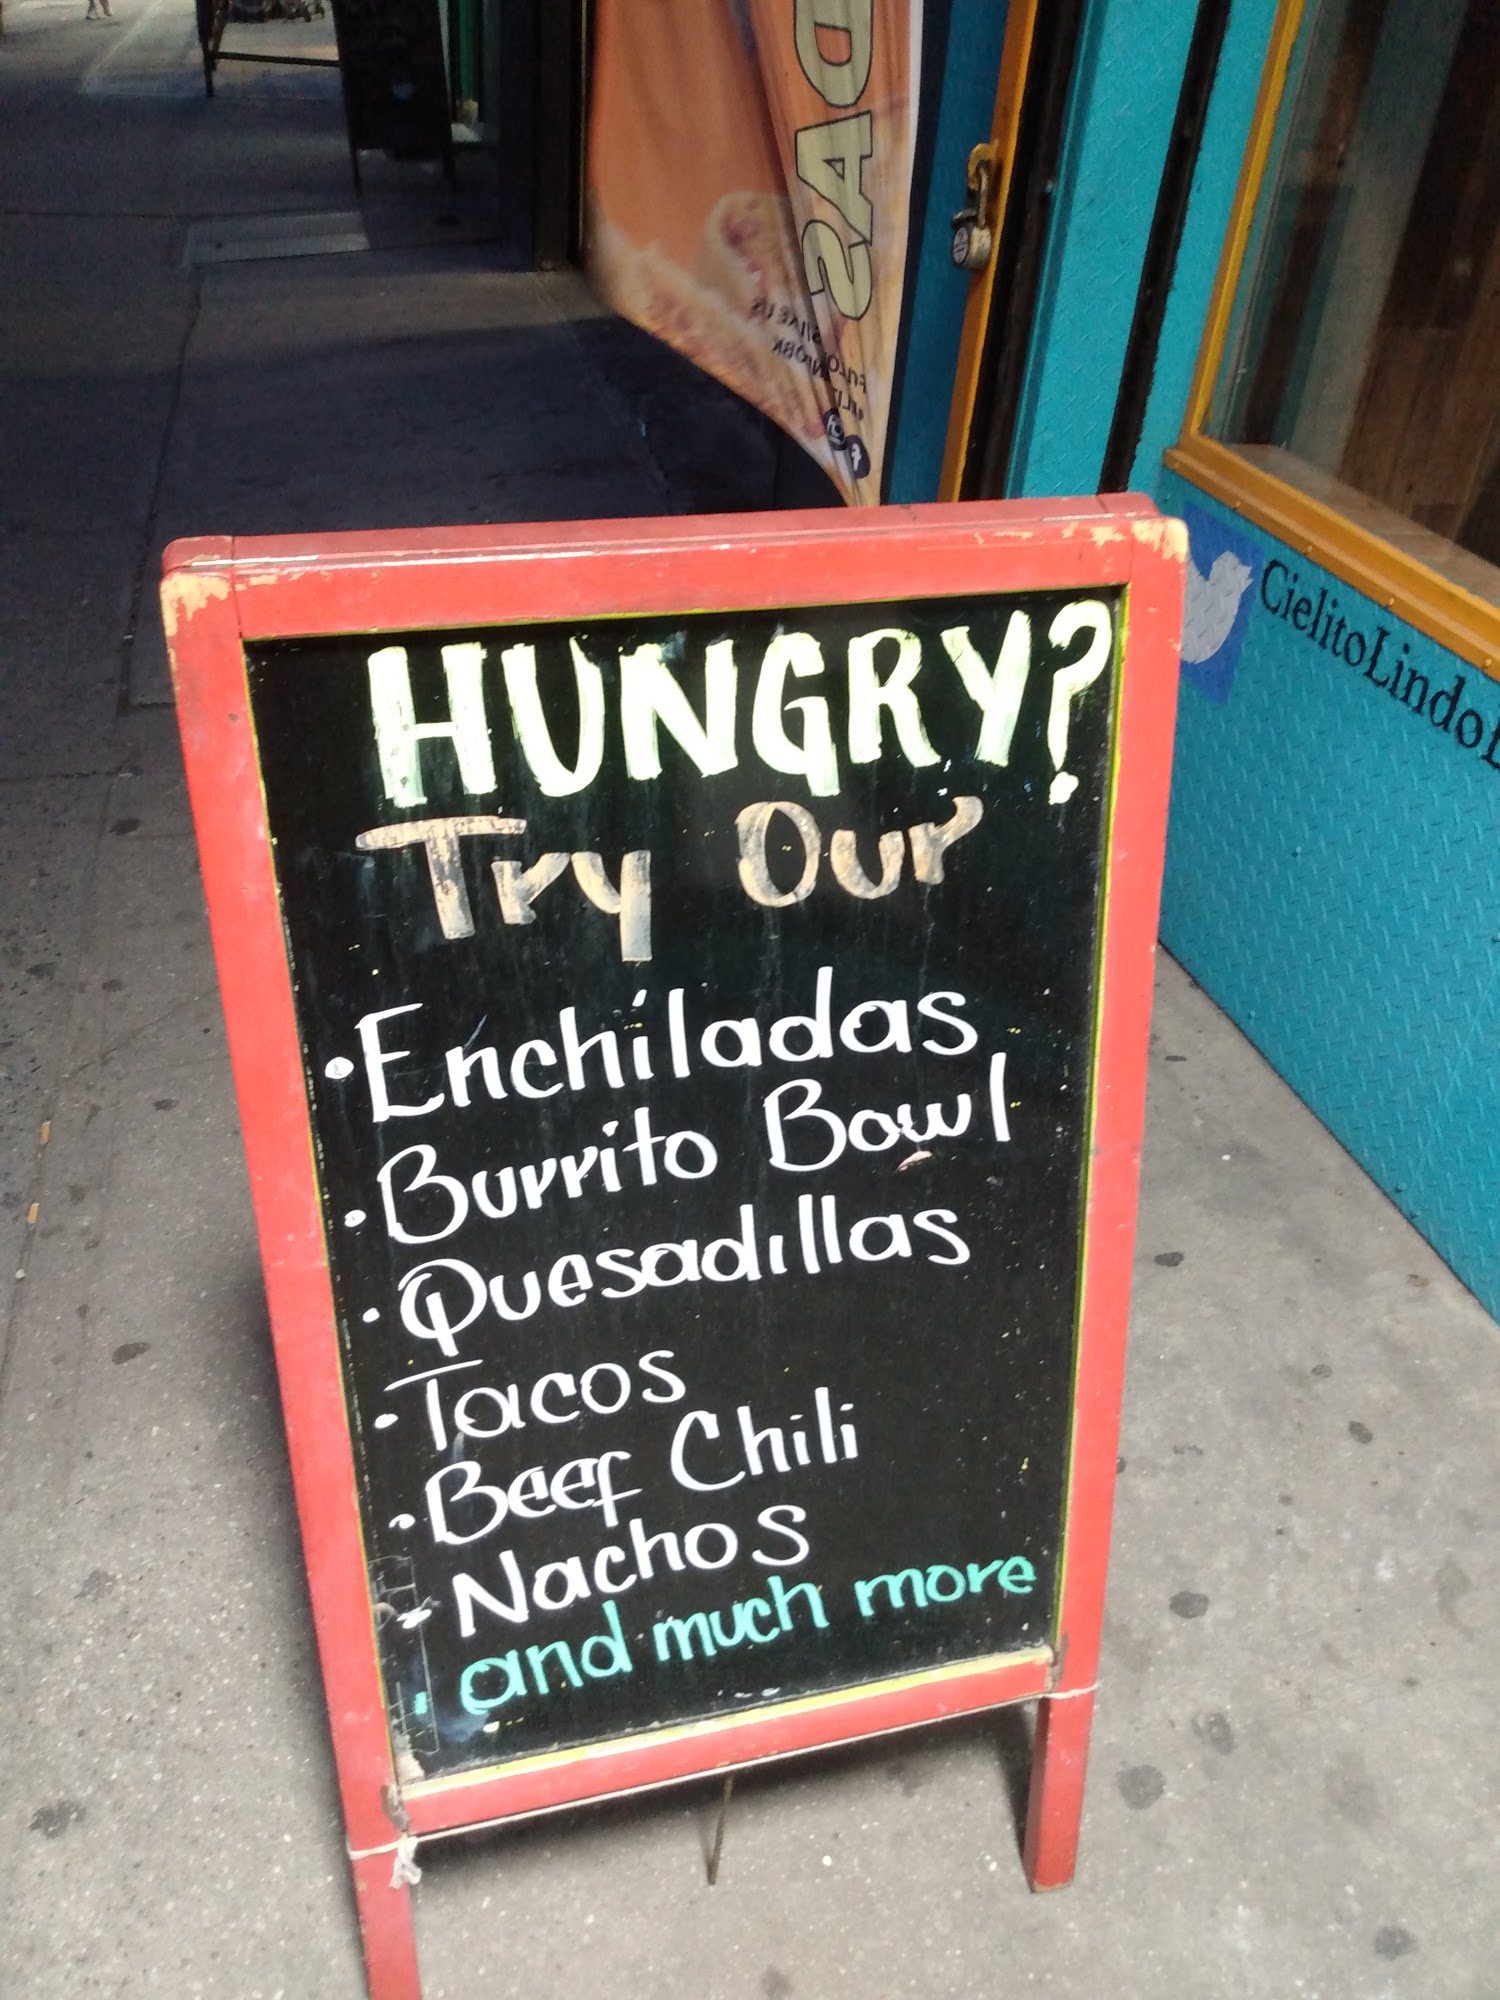 DAS
HUNGRY?
Try Our
• Enchiladas
• Burrito Bowl
• Quesadillas
• Tacos
• Beef Chili
• Nachos
• and much more
CielitoLindo